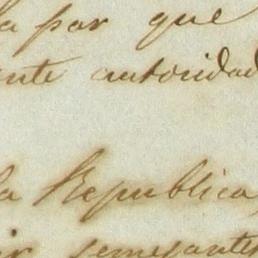 a por que
ente autoridad
la Republica,
ir semejantes